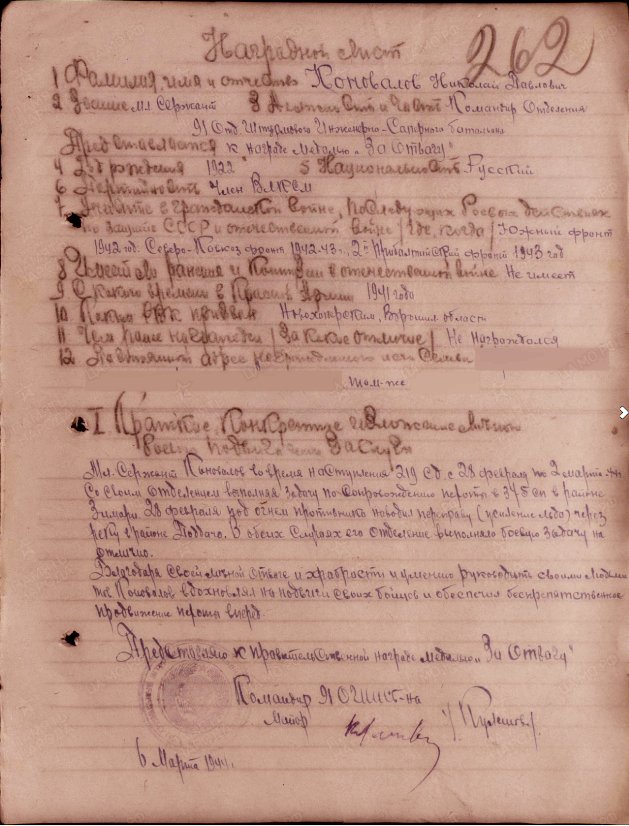 262
Наградной лист
1 Фамилия, имя и отчество Коновалов Николай Павлович
2 Звание Мл Сержант 3 Должность и часть Командир Отделения
91 Отд. Штурмового Инженерно-Саперного батальона
Представляется к награде Медалью "За Отвагу"
4 Год рождения 1922 5 Национальность Русский
6 Партийность Член ВЛКСМ
7 Участие в гражданской войне, последующих боевых действиях
по защите СССР и отечественной войне / где, когда / Южный фронт
1942 год. Северо-Кавказ фронт 1942-43г., 2й Прибалтийский фронт 1943 год
8 Имеет ли ранения и контузии в отечественной войне Не имеет
9 С какого времени в Красной Армии 1941 года
10 Каким РВК призван области
11 Чем ранее награжден / За какое отличие / Не Награждался
12 Постоянный адрес Семьи
том-же
I Краткое, конкретное изложение личного
боевого подвига заслуги
Мл. Сержант Коновалов во время наступления 219 СД. с 28 февраля по 2 марта
Со своим отделением выполняя задачу по сопровождению пехоты в районе
28 февраля под огнем противника наводил переправу (усиление льда) через
реку в районе В обеих случаях его отделение выполняло боевую задачу на
отлично.
Благодаря своей личной отваге и храбрости и умению руководить своими людьми
тов Коновалов вдохновлял на подвиги своих бойцов и обеспечил беспрепятственное
продвижение пехоты вперед.
Представляю к правительственной награде медалью "За Отвагу"
Командир 91 ОШИСБ-на
Майор / Кулешов /.
6 Марта 1944г.